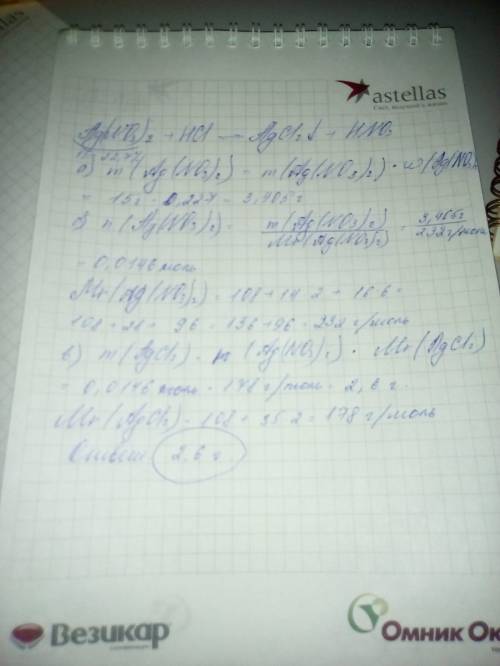 astellas
Ag(NO3)2 + HCl — AgCl2↓ + HNO3
22,7%
а) m(Ag(NO3)2) = m(Ag(NO3)2) · ω(Ag(NO3)
= 15г · 0,227 = 3,405г
б) n(Ag(NO3)2) = m(Ag(NO3)2) / Mr(Ag(NO3)2) = 3,405г / 232г/моль
= 0,0146 моль
Mr(Ag(NO3)2) = 108 + 14·2 + 16·6 =
108 + 28 + 96 = 136 + 96 = 232 г/моль
в) m(AgCl2) = n(Ag(NO3)2) · Mr(AgCl2)
= 0,0146 моль · 178 г/моль = 2,6 г.
Mr(AgCl2) = 108 + 35·2 = 178 г/моль
Ответ: 2,6 г.
Везикар
Омник Ок